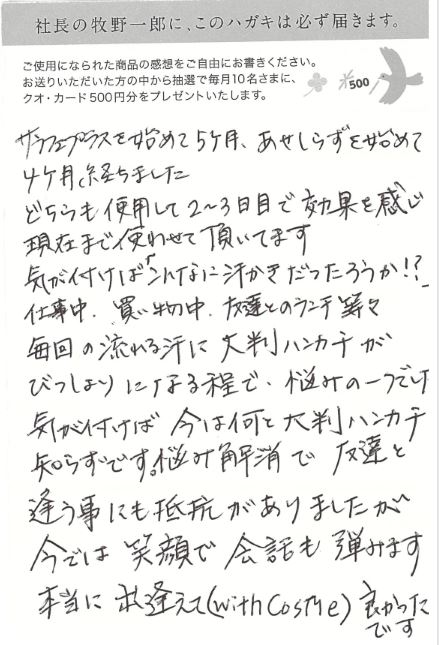 社長の牧野一郎に、このハガキは必ず届きます。
ご使用になられた商品の感想をご自由にお書きください。
お送りいただいた方の中から抽選で毎月10名さまに、
クオ・カード500円分をプレゼントいたします。
500
サラフェプラスを始めて5ケ月、あせしらずを始めて
4ケ月、経ちました
どちらも使用して2〜3日目で効果を感じ
現在まで使わせて頂いてます
気が付けばナンなに汗かきだったろうか!?
仕事中、買い物中、友達とのランチ等々
毎回の流れる汗に大判ハンカチが
びっしょりになる程で、悩みの一つでしたが
気が付けば今は何と大判ハンカチ
知らずです。悩み解消で友達と
逢う事にも抵抗がありましたが
今では笑顔で会話も弾みます
本当に出逢えて(with Cosme)良かった
です